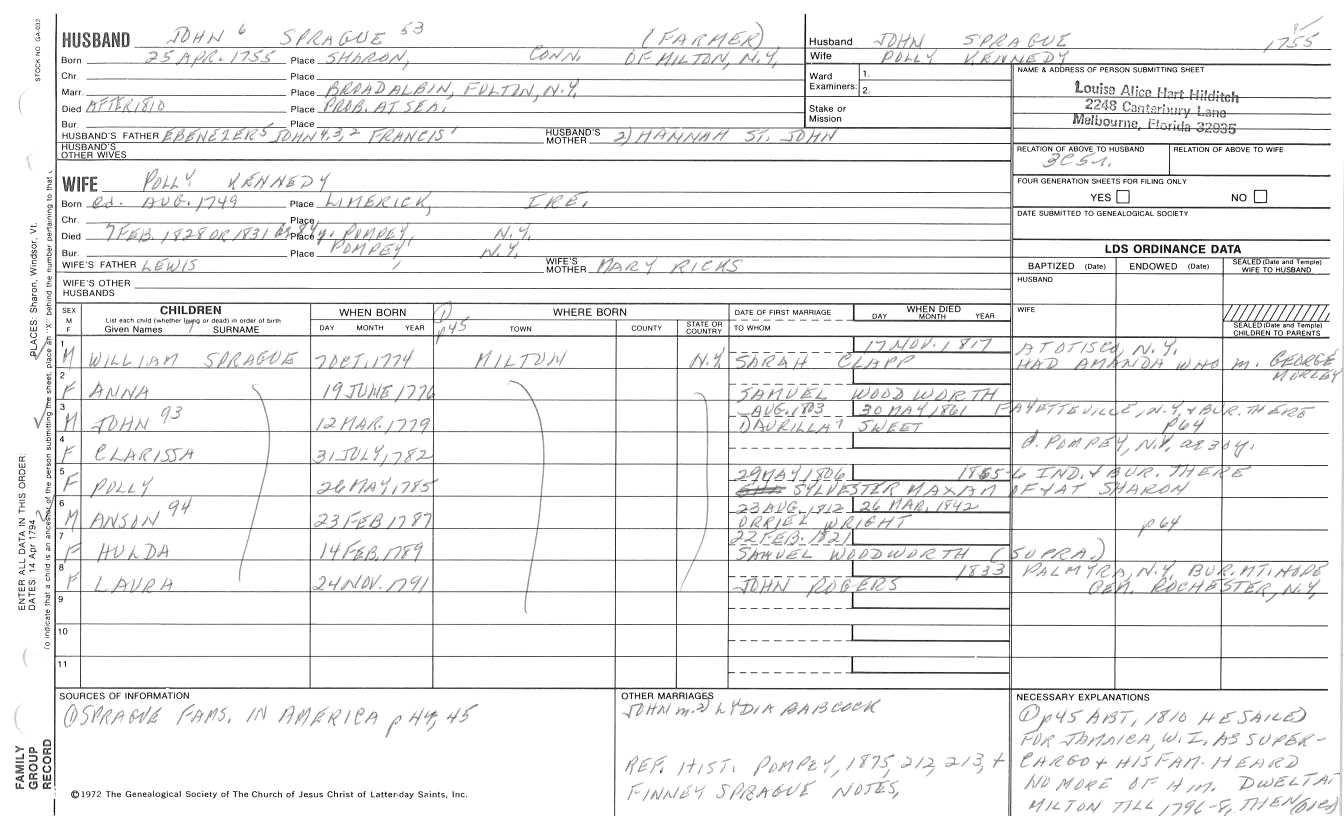 STOCK NO. GA-032
HUSBAND JOHN 6 SPRAGUE 53 (FARMER)
Born 25 APR. 1755 Place SHARON, CONN. OF MILTON, N.Y.
Chr. Place
Marr. Place BROADALBIN, FULTON, N.Y.
Died AFTER 1810 Place PROB. AT SEA.
Bur. Place
HUSBAND'S FATHER EBENEZER 5 JOHN 4,3,2 FRANCIS 1 HUSBAND'S MOTHER 2) HANNAH ST. JOHN
HUSBAND'S OTHER WIVES
Husband JOHN SPRAGUE 1755
Wife POLLY KENNEDY
Ward Examiners: 1.
2.
Stake or Mission
NAME & ADDRESS OF PERSON SUBMITTING SHEET
Louise Alice Hart Hilditch
2248 Canterbury Lane
Melbourne, Florida 32935
RELATION OF ABOVE TO HUSBAND RELATION OF ABOVE TO WIFE
3C5r.
FOUR GENERATION SHEETS FOR FILING ONLY
YES NO
DATE SUBMITTED TO GENEALOGICAL SOCIETY
WIFE POLLY KENNEDY
Born cd. AUG. 1749 Place LIMERICK, IRE.
Chr. Place
Died 7 FEB. 1828 OR 1831 Place POMPEY, N.Y.
Bur. Place POMPEY, N.Y.
WIFE'S FATHER LEWIS WIFE'S MOTHER MARY RICKS
WIFE'S OTHER HUSBANDS
LDS ORDINANCE DATA
BAPTIZED (Date) ENDOWED (Date) SEALED (Date and Temple) WIFE TO HUSBAND
HUSBAND
WIFE
SEALED (Date and Temple) CHILDREN TO PARENTS
SEX M F
CHILDREN
List each child (whether living or dead) in order of birth
Given Names 7 SURNAME
WHEN BORN
DAY MONTH YEAR
① p45
WHERE BORN
TOWN COUNTY STATE OR COUNTRY
DATE OF FIRST MARRIAGE
TO WHOM
WHEN DIED
DAY MONTH YEAR
1 M WILLIAM SPRAGUE 7 OCT. 1774 MILTON N.Y. SARAH CLAPP 17 NOV. 1817 AT OTISCO, N.Y.
HAD AMANDA WHO M. GEORGE MORLEY
2 F ANNA 19 JUNE 1776 SAMUEL WOODWORTH
3 M JOHN 93 12 MAR. 1779 AUG. 1803 30 MAY 1861 FAYETTEVILLE, N.Y. & BUR. THERE
DAURILLA? SWEET p64
4 F CLARISSA 31 JULY, 1782 d. POMPEY, N.Y. ae 30 y.
5 F POLLY 26 MAY, 1785 29 MAY 1806 1855-6 IND. & BUR. THERE
SYLVESTER MAXAM OF & AT SHARON
6 M ANSON 94 23 FEB 1787 23 AUG. 1812 26 MAR. 1842
ORRIEL WRIGHT p64
7 F HULDA 14 FEB. 1789 22 FEB. 1821
SAMUEL WOODWORTH (SUPRA.)
8 F LAURA 24 NOV. 1791 JOHN ROGERS 1833 PALMYRA, N.Y., BUR. MT. HOPE
CEM. ROCHESTER, N.Y.
9
10
11
SOURCES OF INFORMATION
① SPRAGUE FAMS. IN AMERICA p 44, 45
OTHER MARRIAGES
JOHN m. 2) LYDIA BABCOCK
REF. HIST. POMPEY, 1875, 212, 213, +
FINNEY SPRAGUE NOTES,
NECESSARY EXPLANATIONS
① p45 ABT, 1810 HE SAILED
FOR JAMAICA, W.I. AS SUPER-
CARGO & HIS FAM. HEARD
NO MORE OF HIM. DWELT AT
MILTON TILL 1796-8, THEN (over)
©1972 The Genealogical Society of The Church of Jesus Christ of Latter-day Saints, Inc.
FAMILY GROUP RECORD
ENTER ALL DATA IN THIS ORDER:
DATES: 14 Apr 1794
PLACES: Sharon, Windsor, Vt.
To indicate that a child is an ancestor of the person submitting the sheet, place an "X" behind the number pertaining to that